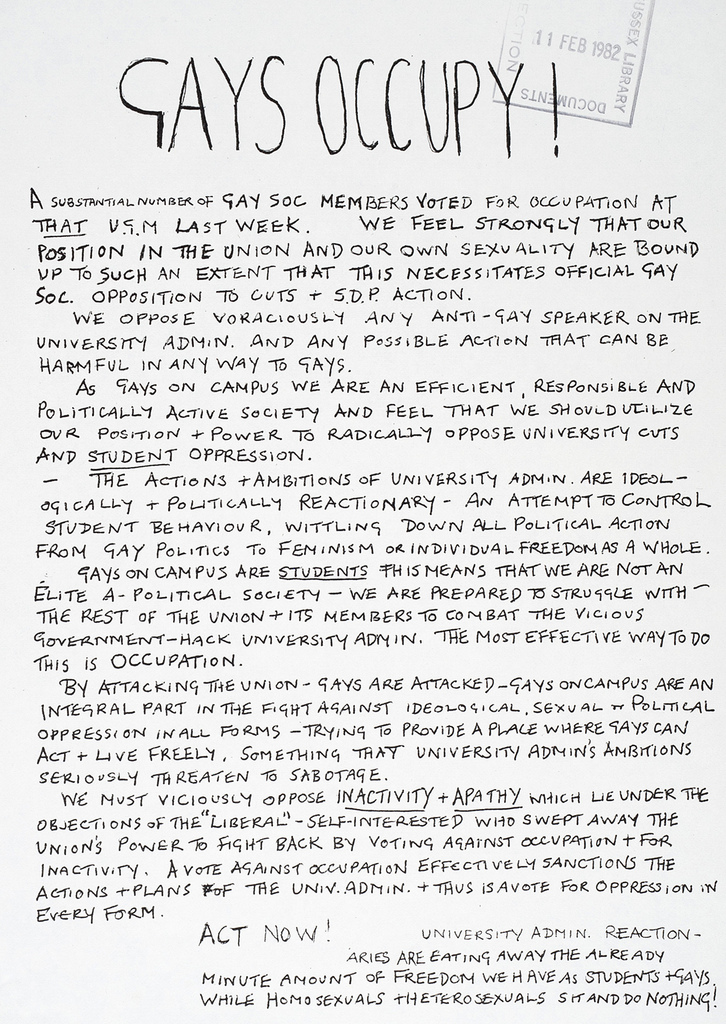 USSEX LIBRARY
11 FEB 1982
DOCUMENTS
ECTION
GAYS OCCUPY!
A SUBSTANTIAL NUMBER OF GAY SOC MEMBERS VOTED FOR OCCUPATION AT
THAT U.G.M LAST WEEK. WE FEEL STRONGLY THAT OUR
POSITION IN THE UNION AND OUR OWN SEXUALITY ARE BOUND
UP TO SUCH AN EXTENT THAT THIS NECESSITATES OFFICIAL GAY
SOC. OPPOSITION TO CUTS + S.D.P. ACTION.
WE OPPOSE VORACIOUSLY ANY ANTI-GAY SPEAKER ON THE
UNIVERSITY ADMIN. AND ANY POSSIBLE ACTION THAT CAN BE
HARMFUL IN ANY WAY TO GAYS.
AS GAYS ON CAMPUS WE ARE AN EFFICIENT, RESPONSIBLE AND
POLITICALLY ACTIVE SOCIETY AND FEEL THAT WE SHOULD UTILIZE
OUR POSITION + POWER TO RADICALLY OPPOSE UNIVERSITY CUTS
AND STUDENT OPPRESSION.
- THE ACTIONS + AMBITIONS OF UNIVERSITY ADMIN. ARE IDEOL-
OGICALLY + POLITICALLY REACTIONARY - AN ATTEMPT TO CONTROL
STUDENT BEHAVIOUR, WITTLING DOWN ALL POLITICAL ACTION
FROM GAY POLITICS TO FEMINISM OR INDIVIDUAL FREEDOM AS A WHOLE.
GAYS ON CAMPUS ARE STUDENTS THIS MEANS THAT WE ARE NOT AN
ÉLITE A-POLITICAL SOCIETY - WE ARE PREPARED TO STRUGGLE WITH -
THE REST OF THE UNION + ITS MEMBERS TO COMBAT THE VICIOUS
GOVERNMENT-HACK UNIVERSITY ADMIN. THE MOST EFFECTIVE WAY TO DO
THIS IS OCCUPATION.
BY ATTACKING THE UNION - GAYS ARE ATTACKED - GAYS ON CAMPUS ARE AN
INTEGRAL PART IN THE FIGHT AGAINST IDEOLOGICAL, SEXUAL + POLITICAL
OPPRESSION IN ALL FORMS - TRYING TO PROVIDE A PLACE WHERE GAYS CAN
ACT + LIVE FREELY, SOMETHING THAT UNIVERSITY ADMIN'S AMBITIONS
SERIOUSLY THREATEN TO SABOTAGE.
WE MUST VICIOUSLY OPPOSE INACTIVITY + APATHY WHICH LIE UNDER THE
OBJECTIONS OF THE "LIBERAL" - SELF-INTERESTED WHO SWEPT AWAY THE
UNION'S POWER TO FIGHT BACK BY VOTING AGAINST OCCUPATION + FOR
INACTIVITY. A VOTE AGAINST OCCUPATION EFFECTIVELY SANCTIONS THE
ACTIONS + PLANS OF THE UNIV. ADMIN. + THUS IS A VOTE FOR OPPRESSION IN
EVERY FORM.
ACT NOW! UNIVERSITY ADMIN. REACTION-
ARIES ARE EATING AWAY THE ALREADY
MINUTE AMOUNT OF FREEDOM WE HAVE AS STUDENTS + GAYS,
WHILE HOMOSEXUALS + HETEROSEXUALS SIT AND DO NOTHING!